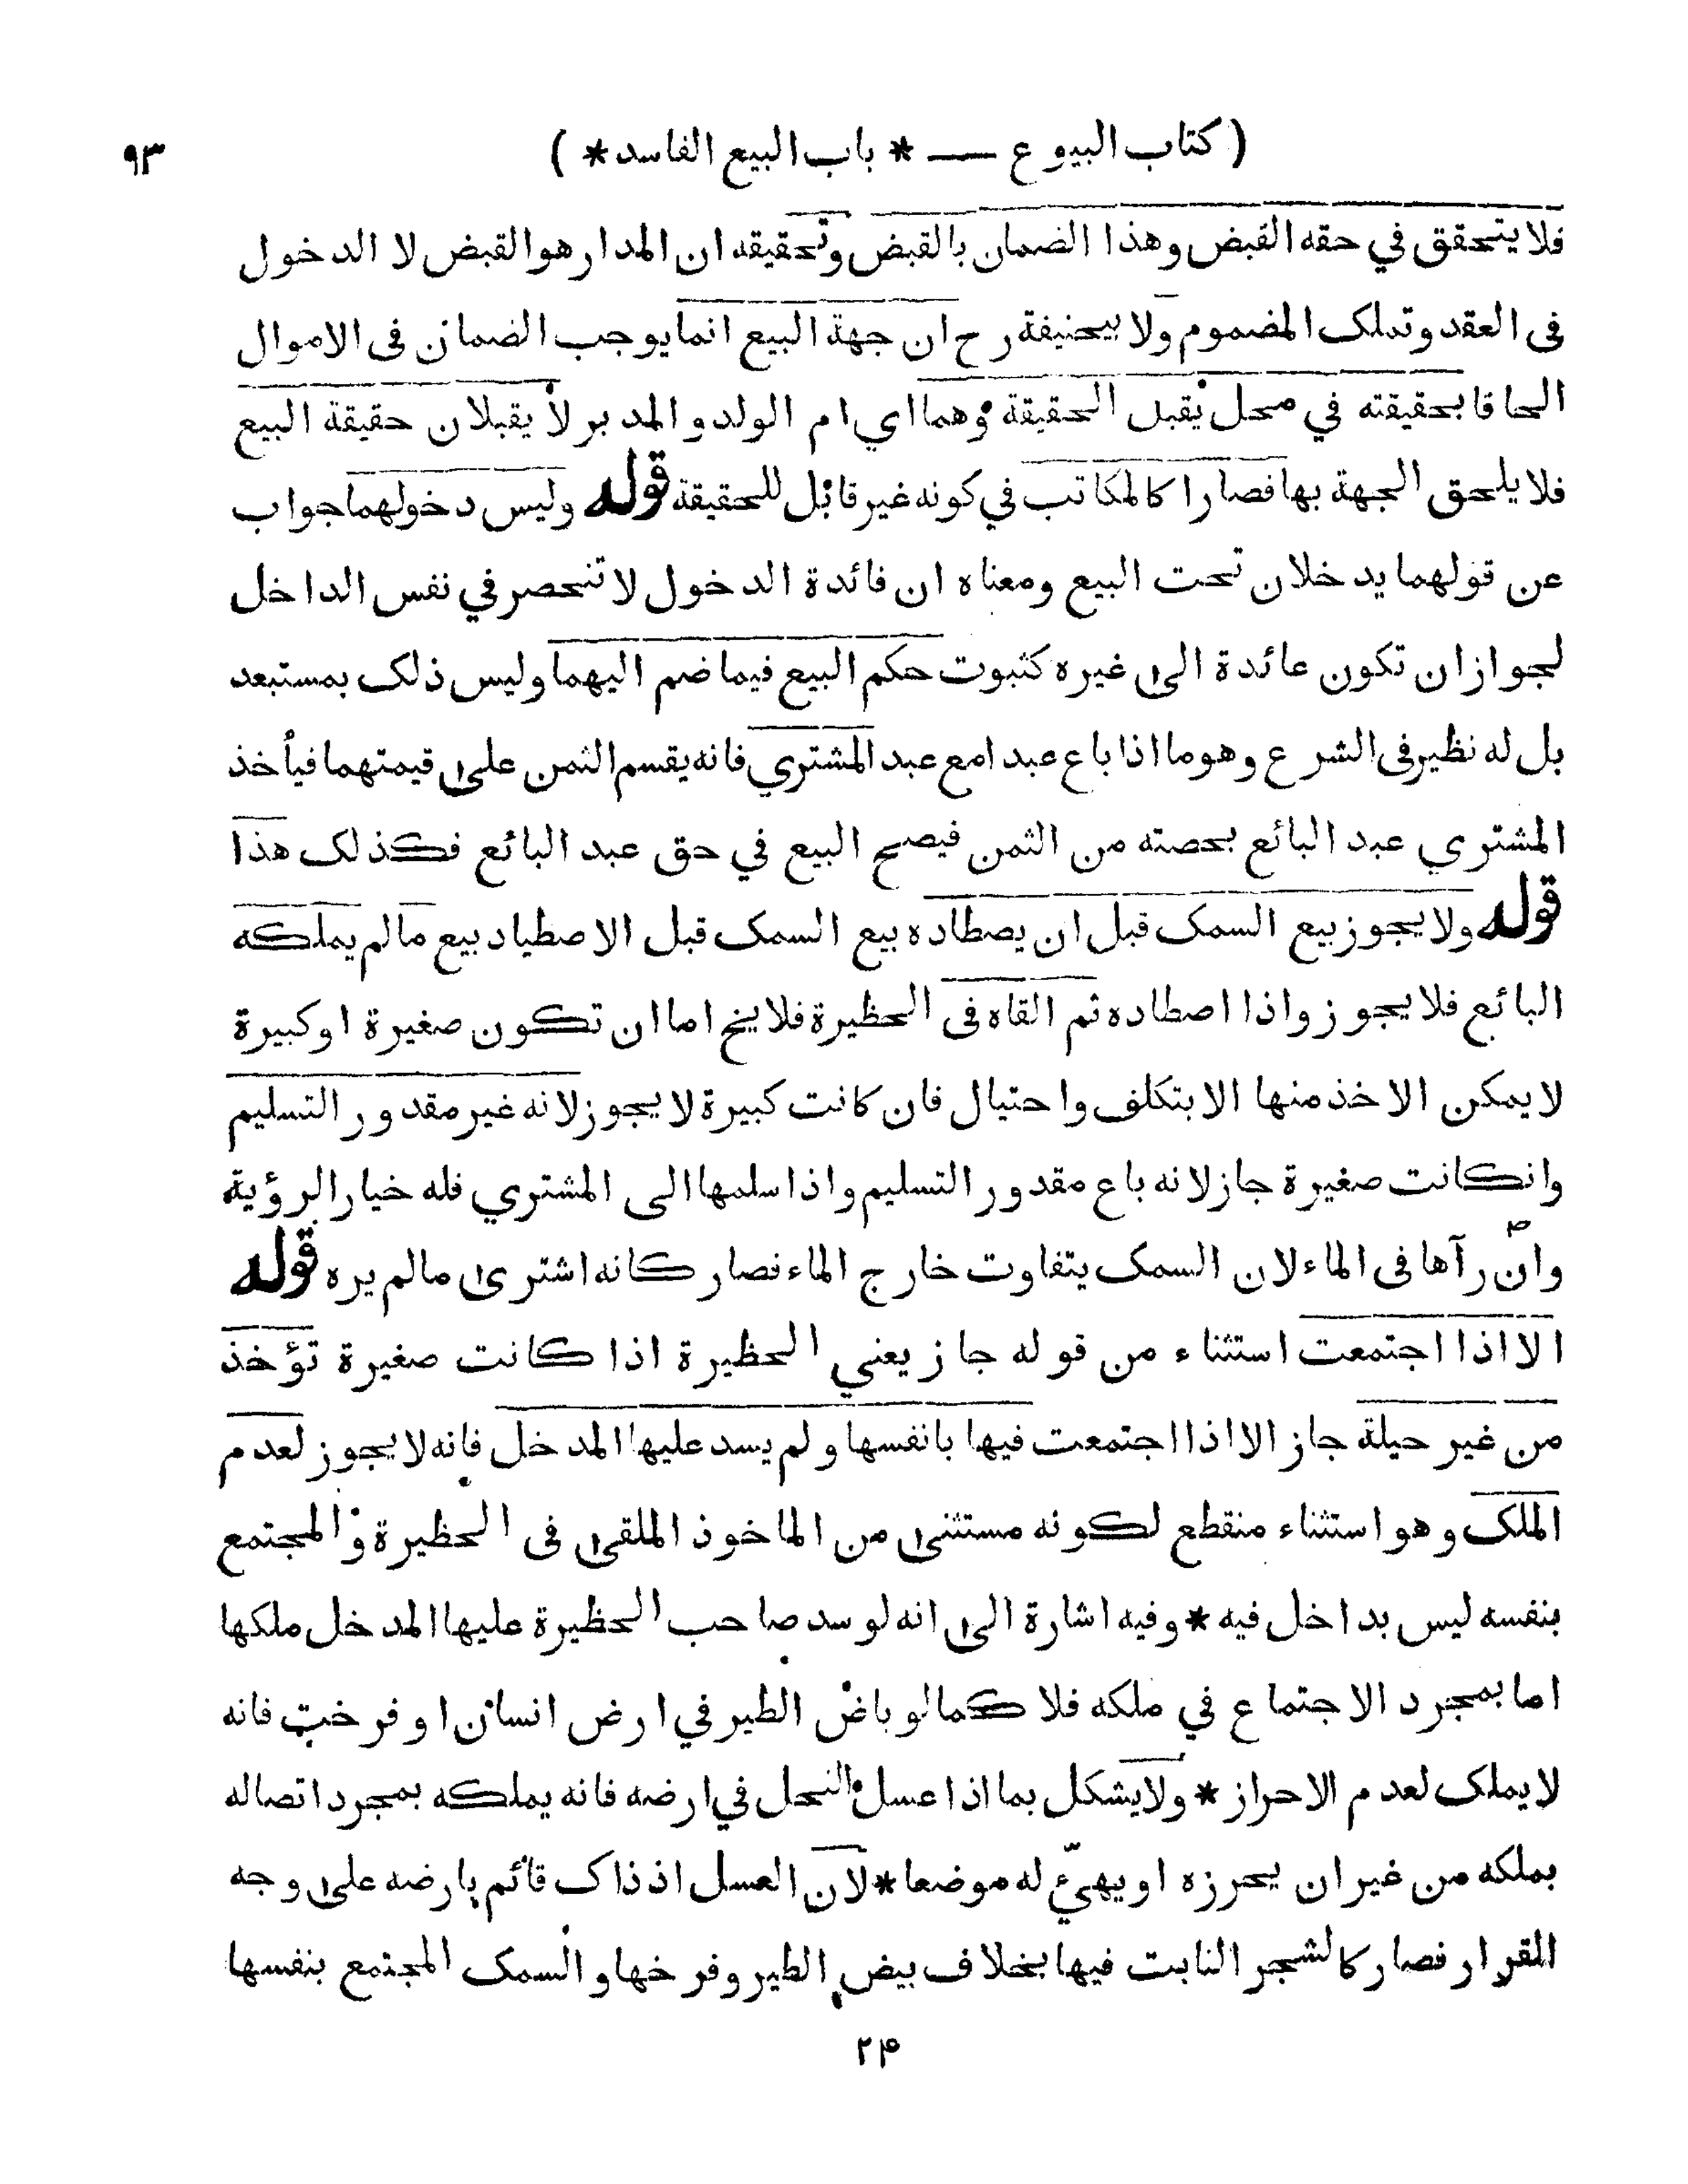 ( كتاب البيوع — * باب البيع الفاسد * )
٩٣
فلا يتحقق في حقه القبض وهذا الضمان بالقبض وتحقيقه ان المدار هو القبض لا الدخول
في العقد وتملك المضموم ولابيحنيفة رح ان جهة البيع انما يوجب الضمان في الاموال
الحاقا بحقيقته في محل يقبل الحقيقة وهما اي ام الولد والمدبر لا يقبلان حقيقة البيع
فلا يلحق الجهة بها فصارا كالمكاتب في كونه غير قابل للحقيقة قوله وليس دخولهما جواب
عن قولهما يدخلان تحت البيع ومعناه ان فائدة الدخول لا تنحصر في نفس الداخل
لجواز ان تكون عائدة الى غيره كثبوت حكم البيع فيما ضم اليهما وليس ذلك بمستبعد
بل له نظير في الشرع وهو ما اذا باع عبدا مع عبد المشتري فانه يقسم الثمن على قيمتهما فيأخذ
المشتري عبد البائع بحصته من الثمن فيصح البيع في حق عبد البائع فكذلك هذا
قوله ولا يجوز بيع السمك قبل ان يصطاده بيع السمك قبل الاصطياد بيع مالم يملكه
البائع فلا يجوز واذا اصطاده ثم القاه في الحظيرة فلا يخ اما ان تكون صغيرة او كبيرة
لا يمكن الاخذ منها الا بتكلف واحتيال فان كانت كبيرة لا يجوز لانه غير مقدور التسليم
وانكانت صغيرة جاز لانه باع مقدور التسليم واذا سلمها الى المشتري فله خيار الرؤية
وان رآها في الماء لان السمك يتفاوت خارج الماء فصار كانه اشترى مالم يره قوله
الا اذا اجتمعت استثناء من قوله جاز يعني الحظيرة اذا كانت صغيرة تؤخذ
من غير حيلة جاز الا اذا اجتمعت فيها بانفسها ولم يسد عليها المدخل فانه لا يجوز لعدم
الملك وهو استثناء منقطع لكونه مستثنى من الماخوذ الملقى في الحظيرة والمجتمع
بنفسه ليس بداخل فيه * وفيه اشارة الى انه لو سد صاحب الحظيرة عليها المدخل ملكها
اما بمجرد الاجتماع في ملكه فلا كما لو باض الطير في ارض انسان او فرخت فانه
لا يملك لعدم الاحراز * ولا يشكل بما اذا عسل النحل في ارضه فانه يملكه بمجرد اتصاله
بملكه من غير ان يحرزه او يهيّئ له موضعا * لان العسل اذ ذاك قائم بارضه على وجه
القرار فصار كالشجر النابت فيها بخلاف بيض الطير وفرخها والسمك المجتمع بنفسها
٢۴